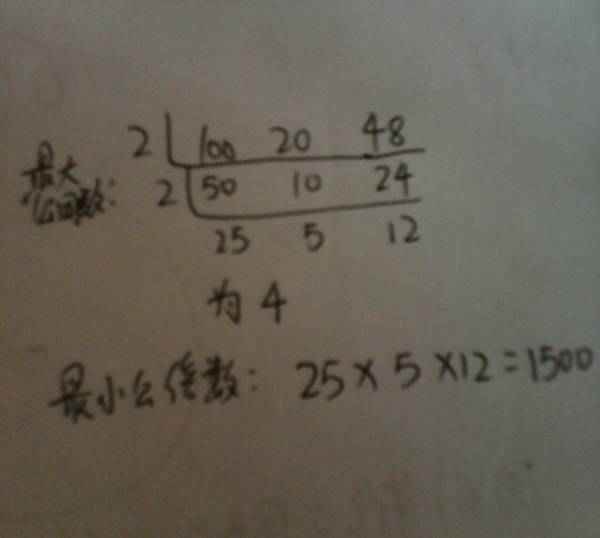 2 100 20 48
最大
公因数: 2 50 10 24
25 5 12
为 4
最小公倍数: 25×5×12=1500